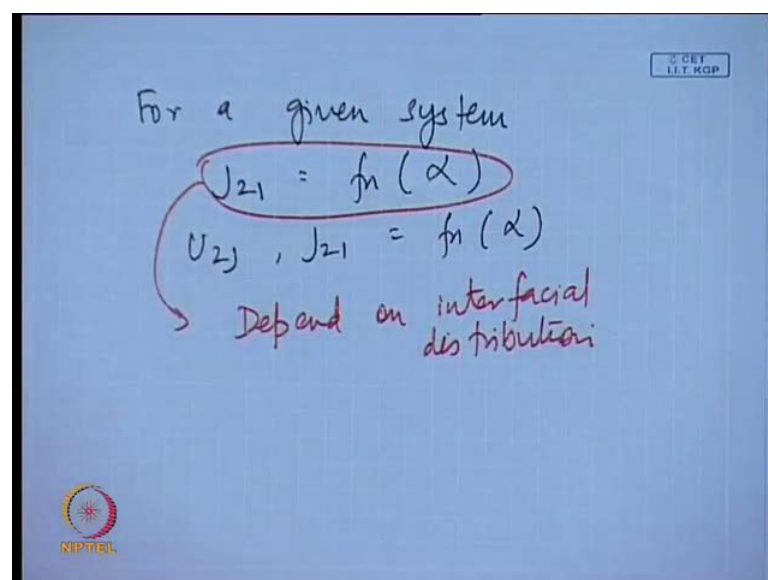 © CET
I.I.T. KGP
For a given system
J21 = fn (α)
U2J , J21 = fn (α)
Depend on interfacial
distribution
NPTEL